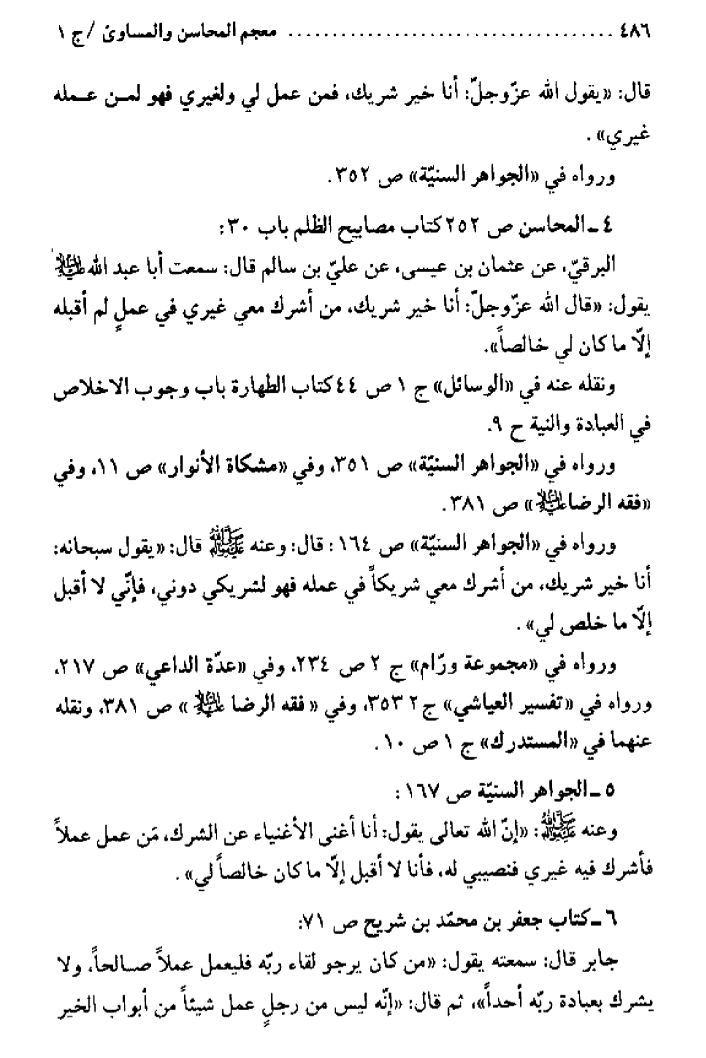 ٤٨٦ .................................... معجم المحاسن والمساوئ /ج ١
قال: «يقول الله عزّوجلّ: أنا خير شريك، فمن عمل لي ولغيري فهو لمـن عـمله
غيري».
ورواه في «الجواهر السنيّة» ص ٣٥٢.
٤ ـ المحاسن ص ٢٥٢ كتاب مصابيح الظلم باب ٣٠:
البرقيّ، عن عثمان بن عيسى، عن عليّ بن سالم قال: سمعت أبا عبد الله عليه السلام
يقول: «قال الله عزّوجلّ: أنا خير شريك، من أشرك معي غيري في عملٍ لم أقبله
إلّا ما كان لي خالصاً».
ونقله عنه في «الوسائل» ج ١ ص ٤٤ كتاب الطهارة باب وجوب الاخلاص
في العبادة والنية ح ٩.
ورواه في «الجواهر السنيّة» ص ٣٥١، وفي «مشكاة الأنوار» ص ١١، وفي
«فقه الرضا عليه السلام» ص ٣٨١.
ورواه في «الجواهر السنيّة» ص ١٦٤: قال: وعنه ﷺ قال: «يقول سبحانه:
أنا خير شريك، من أشرك معي شريكاً في عمله فهو لشريكي دوني، فإنّي لا أقبل
إلّا ما خلص لي».
ورواه في «مجموعة ورّام» ج ٢ ص ٢٣٤، وفي «عدّة الداعي» ص ٢١٧،
ورواه في «تفسير العياشي» ج ٢ ٣٥٣، وفي « فقه الرضا عليه السلام » ص ٣٨١، ونقله
عنهما في «المستدرك» ج ١ ص ١٠.
٥ ـ الجواهر السنيّة ص ١٦٧:
وعنه ﷺ: «إنّ الله تعالى يقول: أنا أغنى الأغنياء عن الشرك، مَن عمل عملاً
فأشرك فيه غيري فنصيبي له، فأنا لا أقبل إلّا ما كان خالصاً لي».
٦ ـ كتاب جعفر بن محمّد بن شريح ص ٧١:
جابر قال: سمعته يقول: «من كان يرجو لقاء ربّه فليعمل عملاً صـالحاً، ولا
يشرك بعبادة ربّه أحداً»، ثم قال: «إنّه ليس من رجلٍ عمل شيئاً من أبواب الخير